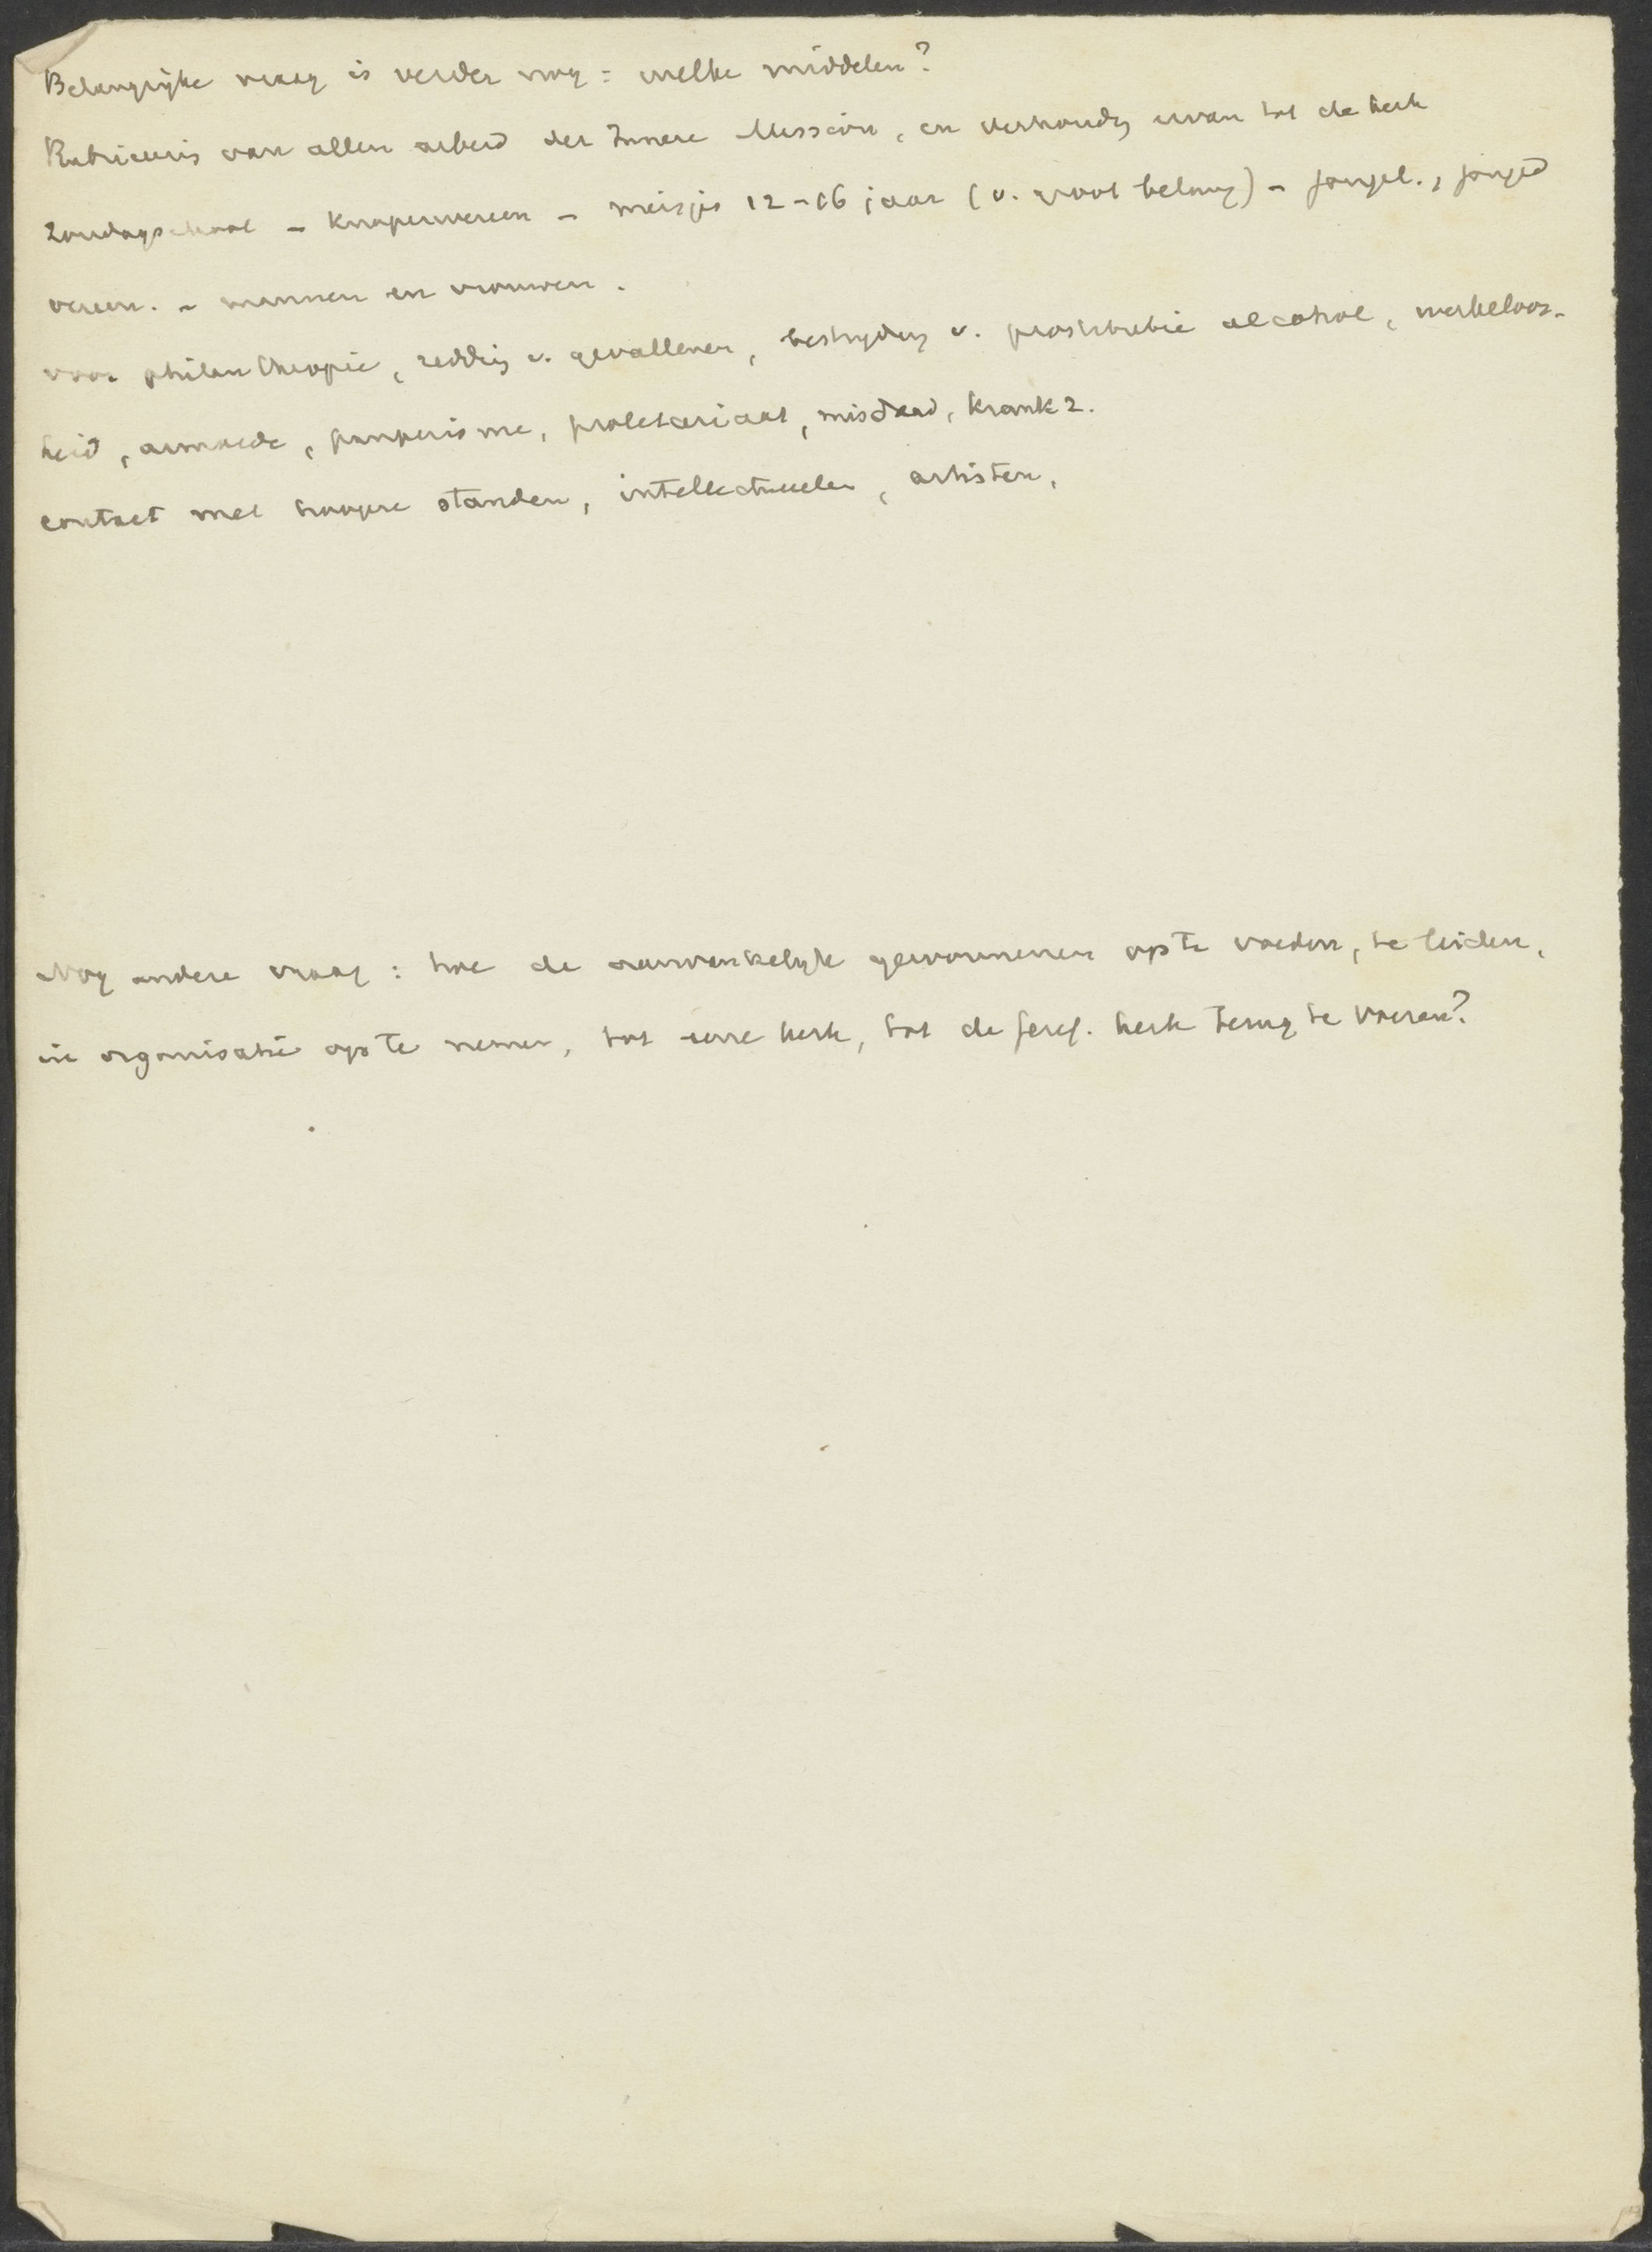 Belangrijke vraag is verder nog: welke middelen?
Rubriceering van allen arbeid der Innere Mission, en verhouding ervan tot de kerk
Zondagschool – Knapenvereen – meisjes 12–16 jaar (v. groot belang) – jongel., jonged
vereen. – mannen en vrouwen.
voor philanthropie, redding v. gevallenen, bestrijding v. prostitutie alcohol, werkeloos-
heid, armoede, pauperisme, proletariaat, misdaad, krankz.
contact met hoogere standen, intellectueelen, artisten,
Nog andere vraag: hoe de aanvankelijk gewonnenen op te voeden, te leiden,
in organisatie op te nemen, tot eene kerk, tot de geref. kerk terug te voeren?